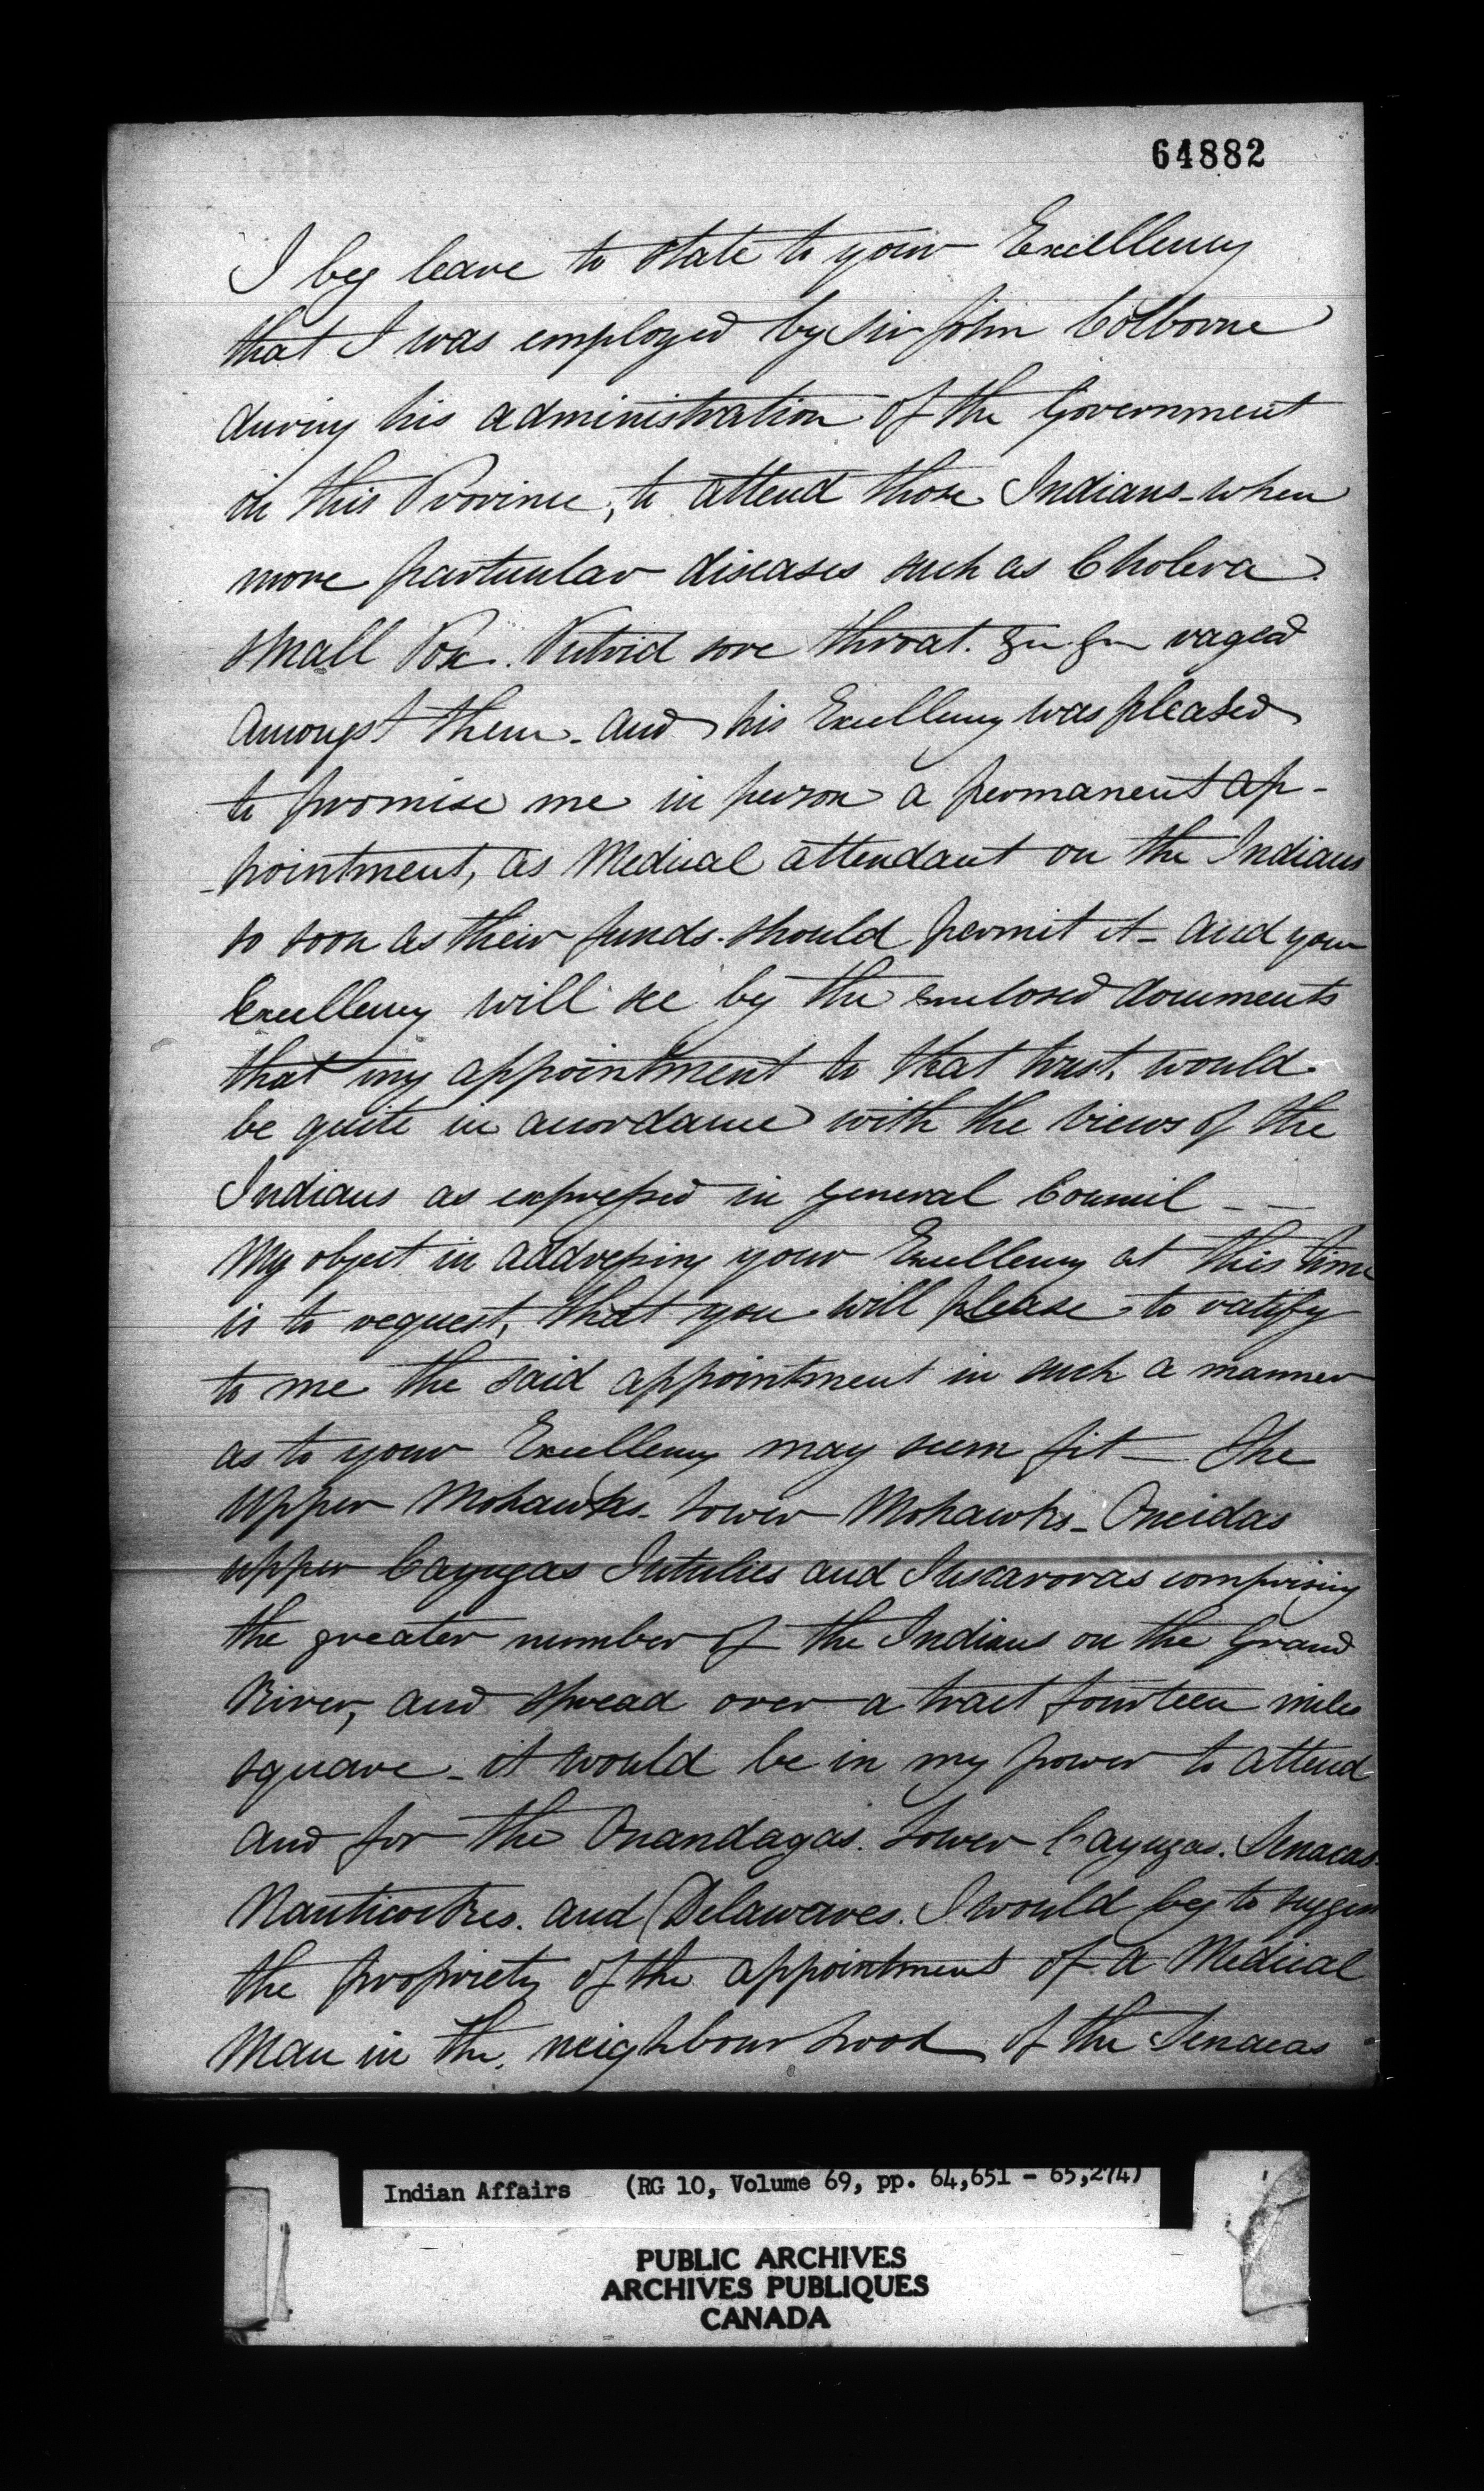 64882
I beg leave to state to your Excellency
that I was employed by Sir John Colborne
during his administration of the Government
in this Province, to attend those Indians - when
more particular diseases such as Cholera
Small Pox. Putrid sore throat. &c &c raged
amongst them - and his Excellency was pleased
to promise me in person a permanent ap-
-pointment, as Medical attendant on the Indians
so soon as their funds should permit it - and your
Excellency will see by the enclosed documents
that my appointment to that trust, would
be quite in accordance with the views of the
Indians as expressed in general Council - -
My object in addressing your Excellency at this time
is to request, that you will please to ratify
to me the said appointment in such a manner
as to your Excellency may seem fit - The
Upper Mohawks - Lower Mohawks - Oneidas
upper Cayugas Tutulies and Tuscaroras comprising
the greater number of the Indians on the Grand
River, and spread over a tract fourteen miles
square - it would be in my power to attend
and for the Onandagas. Lower Cayugas. Senacas
Nanticokes. and Delawares. I would beg to suggest
the propriety of the appointment of a Medical
Man in the neighbourhood of the Senacas
Indian Affairs (RG 10, Volume 69, pp. 64,651 - 65,274)
PUBLIC ARCHIVES
ARCHIVES PUBLIQUES
CANADA